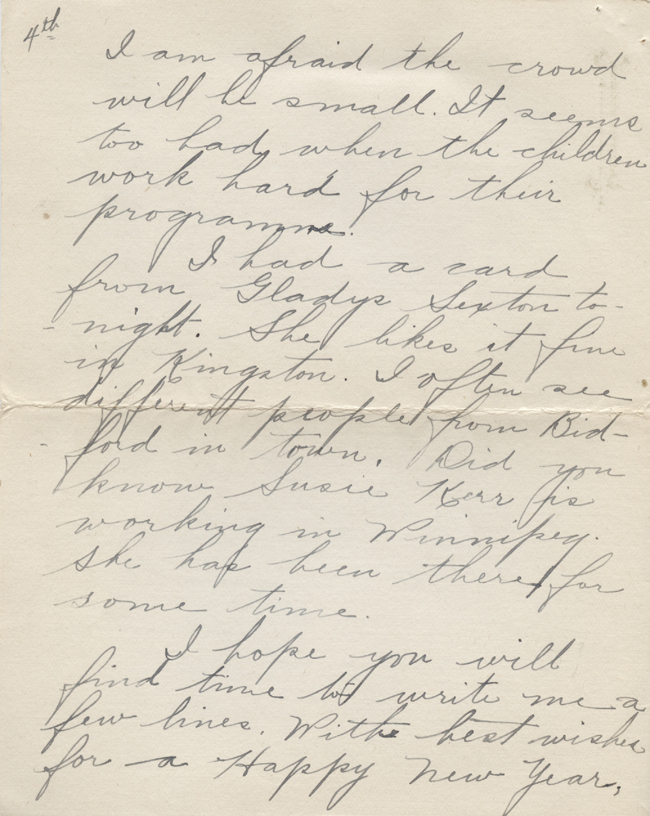 4th
I am afraid the crowd
will be small. It seems
too bad, when the children
work hard for their
programme.
I had a card
from Gladys Sexton to-
night. She likes it fine
in Kingston. I often see
different people from Bid-
ford in town. Did you
know Susie Kerr is
working in Winnipeg.
She has been there for
some time.
I hope you will
find time to write me a
few lines. With best wishes
for a Happy New Year,